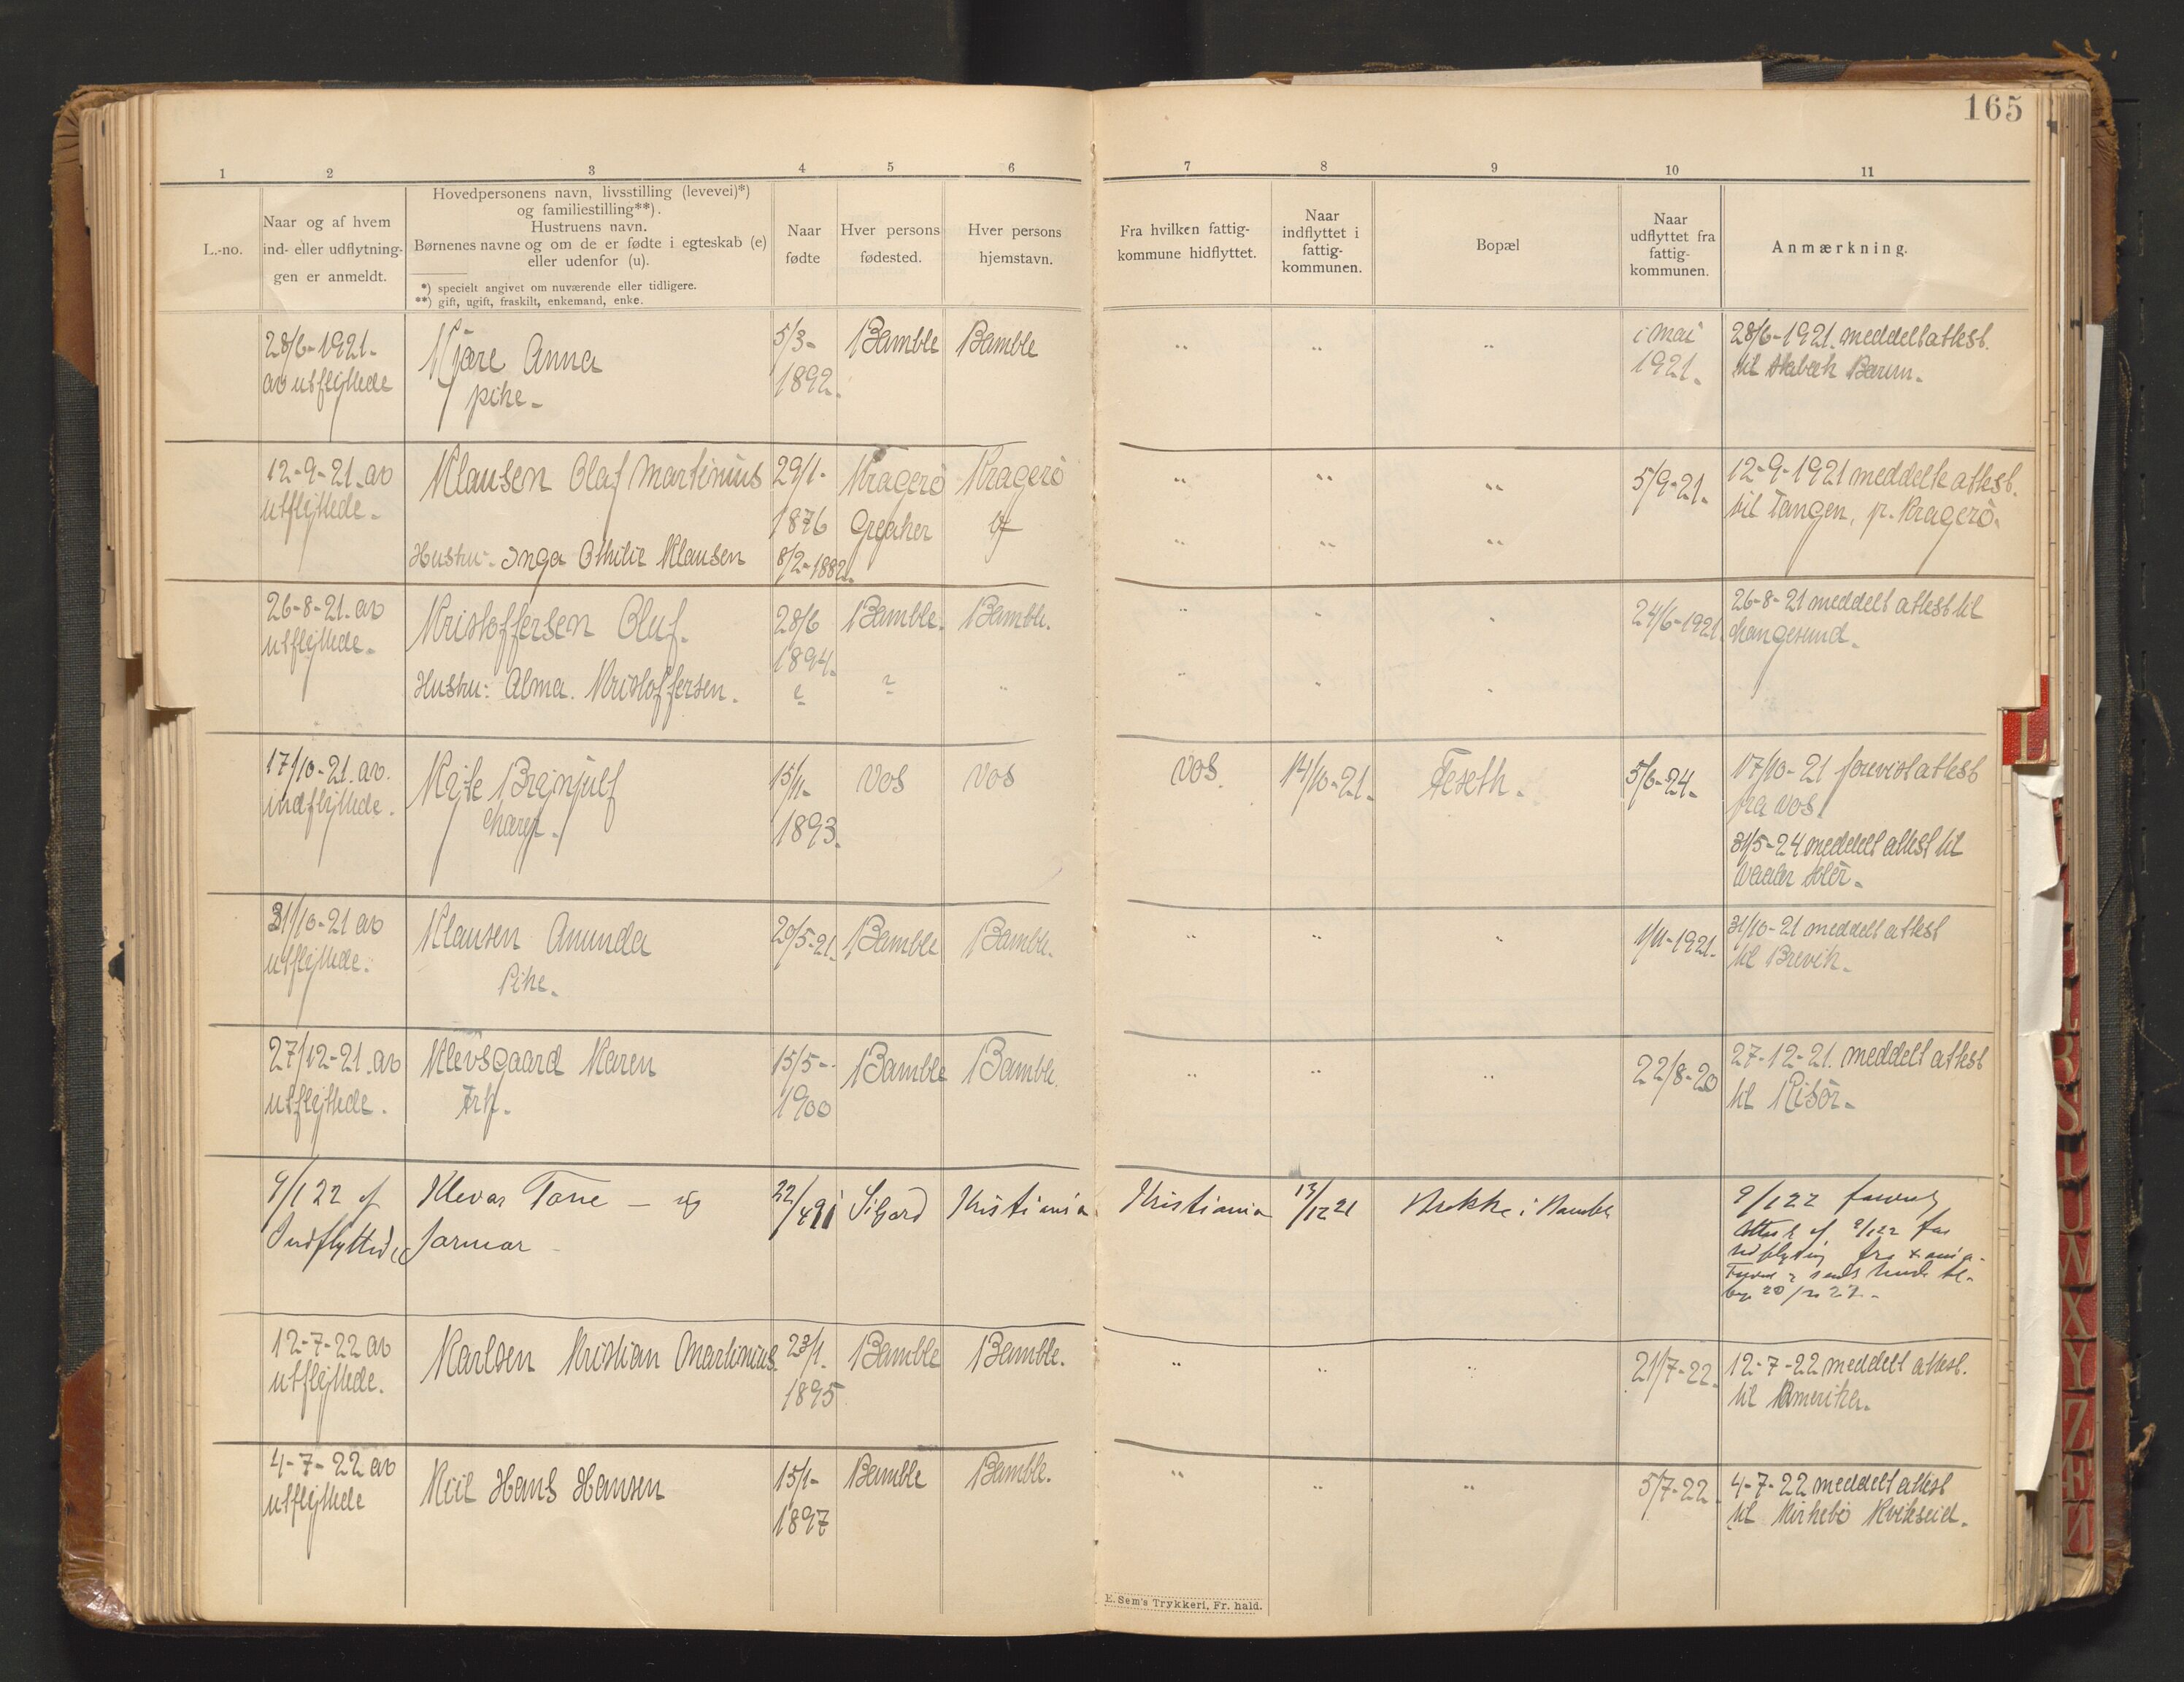 165
1 2 3 4 5 6 7 8 9 10 11
L.-no.
Naar og af hvem
ind- eller udflytning-
gen er anmeldt.
Hovedpersonens navn, livsstilling (levevei)*)
og familiestilling**).
Hustruens navn.
Børnenes navne og om de er fødte i egteskab (e)
eller udenfor (u).
*) specielt angivet om nuværende eller tidligere.
**) gift, ugift, fraskilt, enkemand, enke.
Naar
fødte
Hver persons
fødested.
Hver persons
hjemstavn.
Fra hvilken fattig-
kommune hidflyttet.
Naar
indflyttet i
fattig-
kommunen.
Bopæl
Naar
udflyttet fra
fattig-
kommunen.
Anmærkning.
28/6-1921-
av utflyttede
Kjøre Anna
pike-
5/3-
1892.
Bamble
Bamble
" " "
i mai
1921-
28/6-1921. meddelt attest.
til Stabæk Bærum-
12-9-21. av
utflyttede-
Klausen Olaf Martinius
Hustru- Inga Othilie Klausen
29/1-
1876
8/2-1882.
Kragerö
Greaker
Kragerö
" " "
" " "
5/9-21-
12-9-1921 meddelt attest.
til Tangen, p. Kragerö-
26-8-21. av
utflyttede-
Kristoffersen Oluf-
Hustru: Alma. Kristoffersen-
28/6
1894-
?
Bamble.
?
Bamble.
"
" " "
" " "
24/6-1921.
26-8-21 meddelt attest til
Langesund-
17/10-21. av.
indflyttede.
Kyte Brynjulf
Lærer-
15/11-
1893.
Vos
Vos
Vos.
14/10-21-
Feseth-
5/6-24-
17/10-21 forevist attest
fra Vos.
31/5-24 meddelt attest til
Vaaler Solör-
31/10-21 av
utflyttede.
Klausen Amunda
Pike-
20/5-21.
Bamble
Bamble.
" " "
1/11-1921.
31/10-21 meddelt attest
til Brevik-
27/12-21. av
utflyttede.
Klevsgaard Karen
Frk.
15/5-
1900
Bamble
Bamble.
" " "
22/8-20
27-12-21. meddelt attest
til Risör-
9/1 22 af
Indflyttede
Klevar Tone - ug
22/4 91
Kristiania
Kristiania
13/12 21
Brekke i Bamble
9/1 22
12-7-22 av
utflyttede.
Karlsen Kristian Martinius
23/1-
1895
Bamble
Bamble.
" " "
21/7-22.
12-7-22 meddelt attest.
til Amerika-
4-7-22 av
utflyttede
Kiil Hans Hansen
15/1-
1897
Bamble
Bamble.
" " "
5/7-22.
4-7-22 meddelt attest
til Kirkebö Kvikseid-
E. Sem's Trykkeri, Fr. hald.
L
W
X
Y
Z
Æ